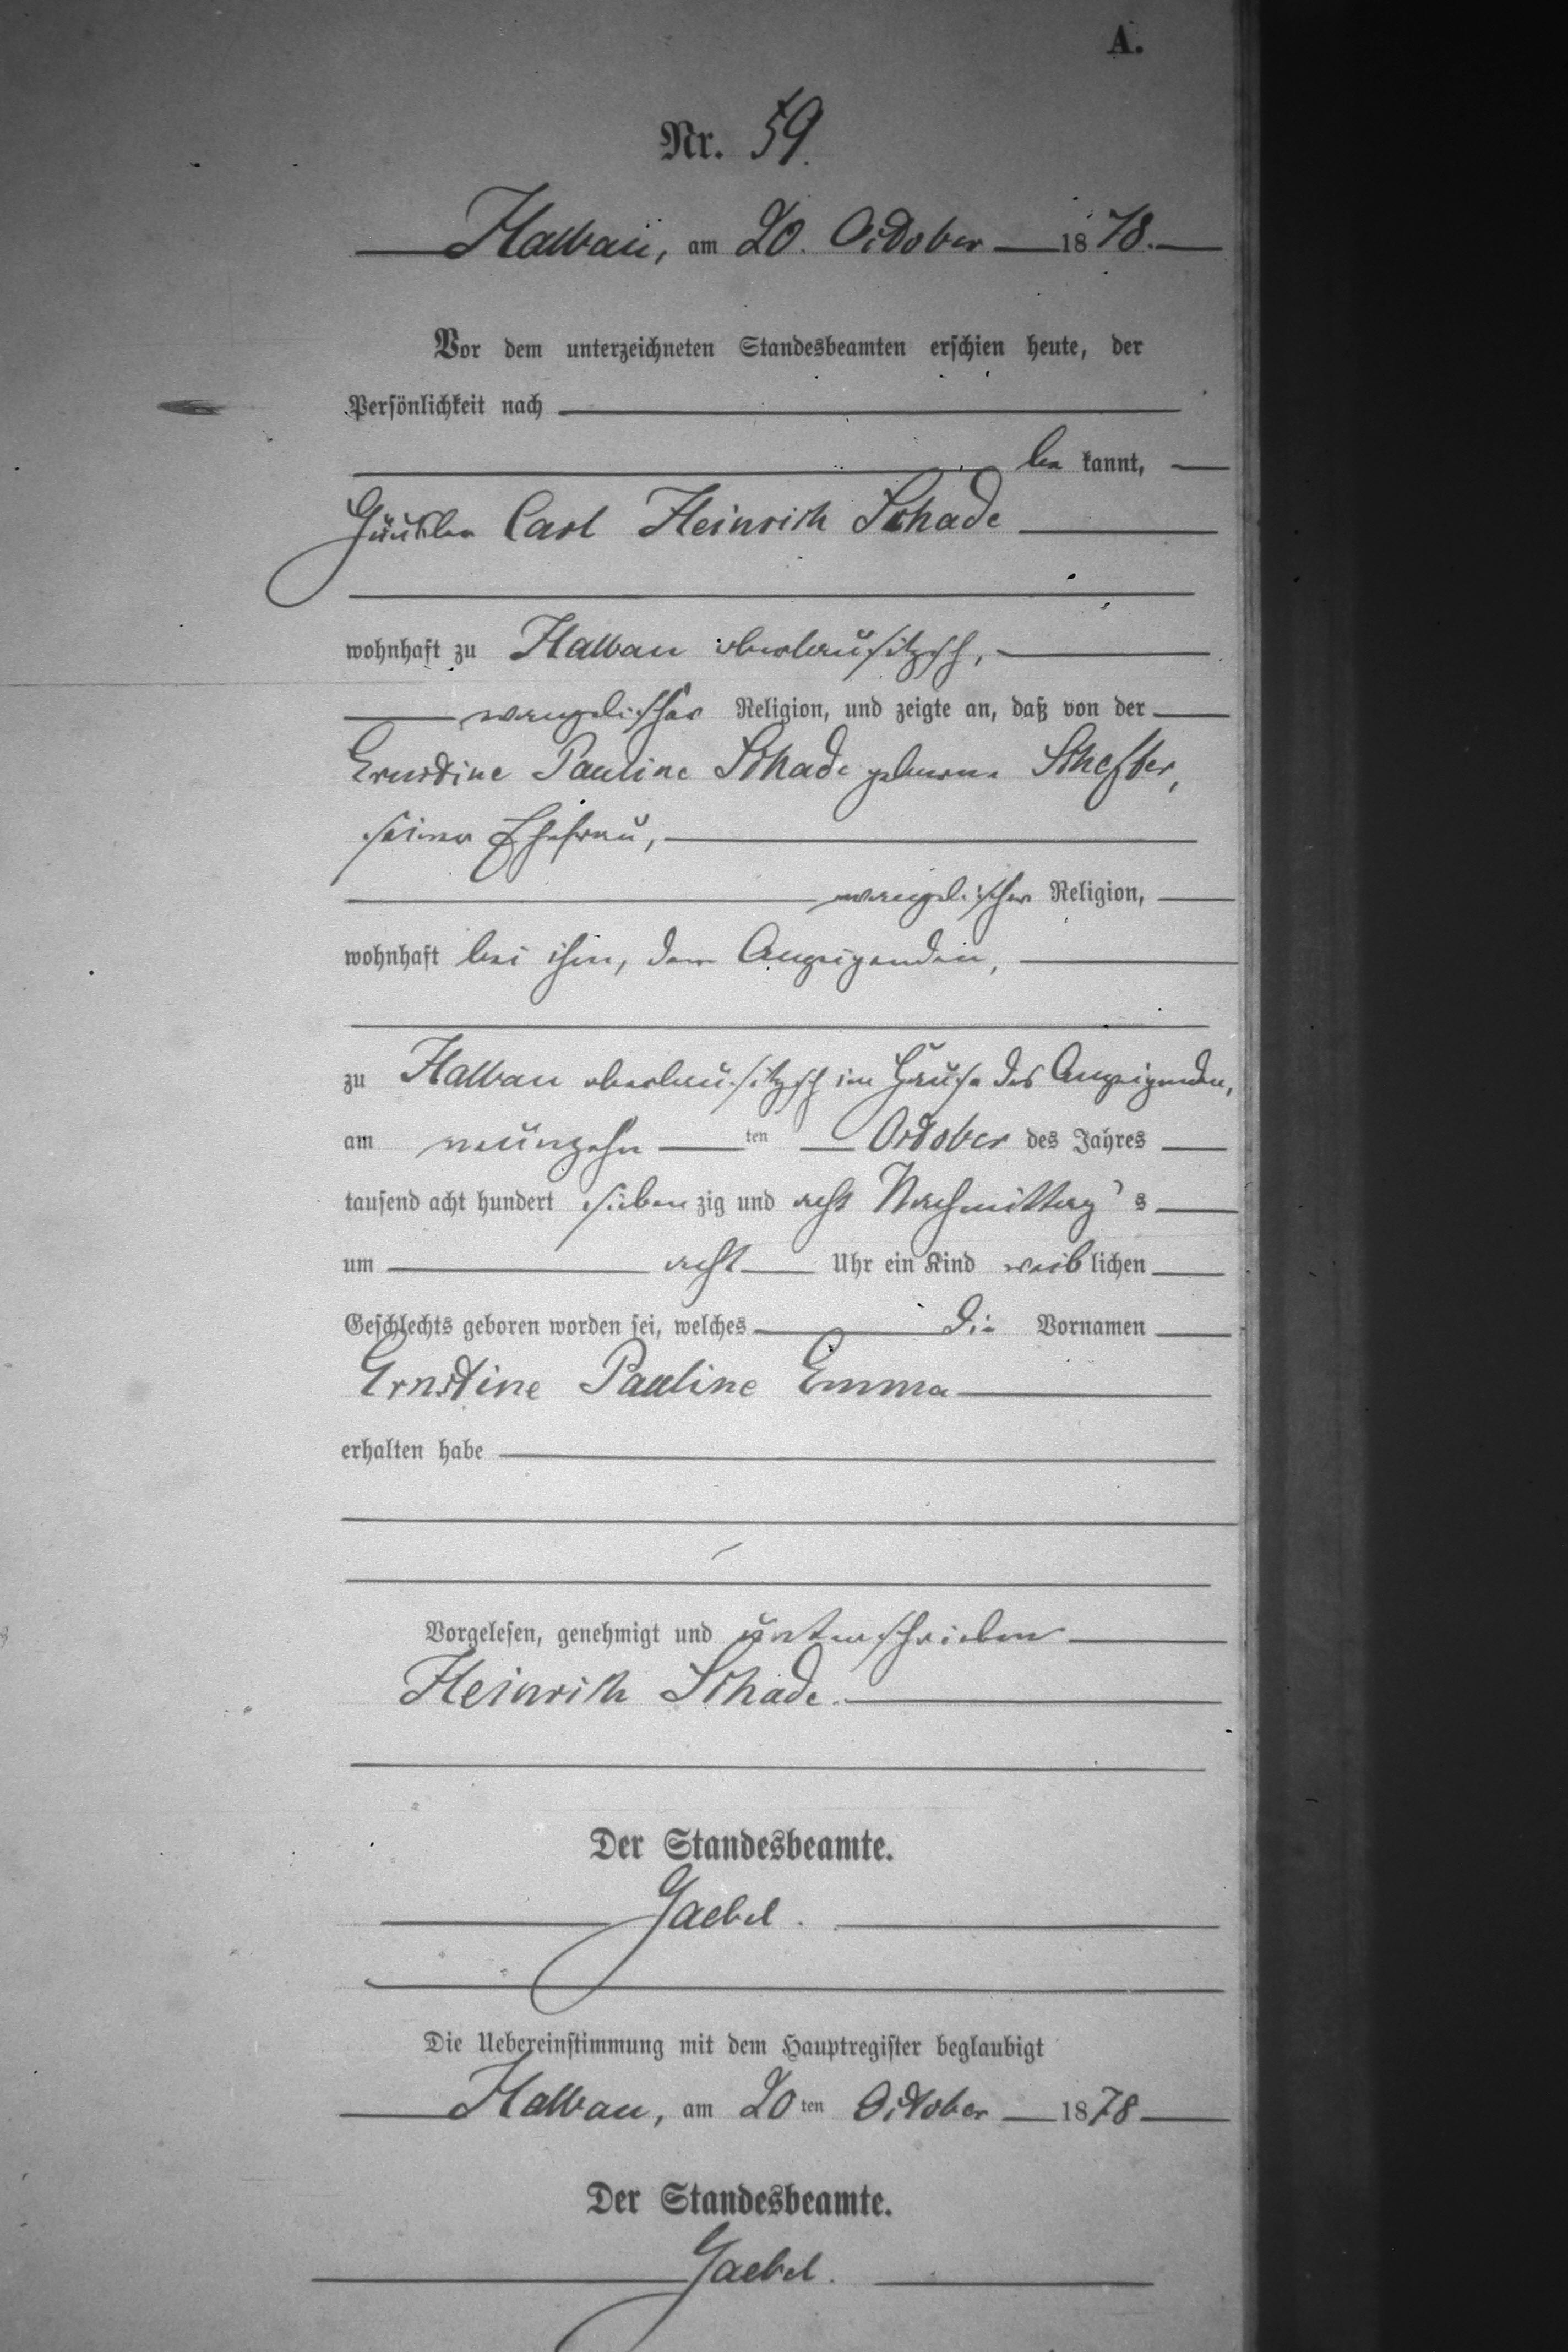 A.
Nr. 59.
Halbau, am 20. October 1878.
Vor dem unterzeichneten Standesbeamten erschien heute, der
Persönlichkeit nach
be kannt,
Häusler Carl Heinrich Schade
wohnhaft zu Halbau oberlausitzsch,
evangelischer Religion, und zeigte an, daß von der
Ernestine Pauline Schade geborne Scheffler,
seiner Ehefrau,
evangelischer Religion,
wohnhaft bei ihm, dem Anzeigenden,
zu Halbau oberlausitzsch im Hause des Anzeigenden,
am neunzehn ten October des Jahres
tausend acht hundert sieben zig und acht Nachmittag's
um acht Uhr ein Kind weiblichen
Geschlechts geboren worden sei, welches die Vornamen
Ernstine Pauline Emma
erhalten habe
Vorgelesen, genehmigt und unterschrieben
Heinrich Schade.
Der Standesbeamte.
Gaebel.
Die Uebereinstimmung mit dem Hauptregister beglaubigt
Halbau, am 20ten October 1878
Der Standesbeamte.
Gaebel.